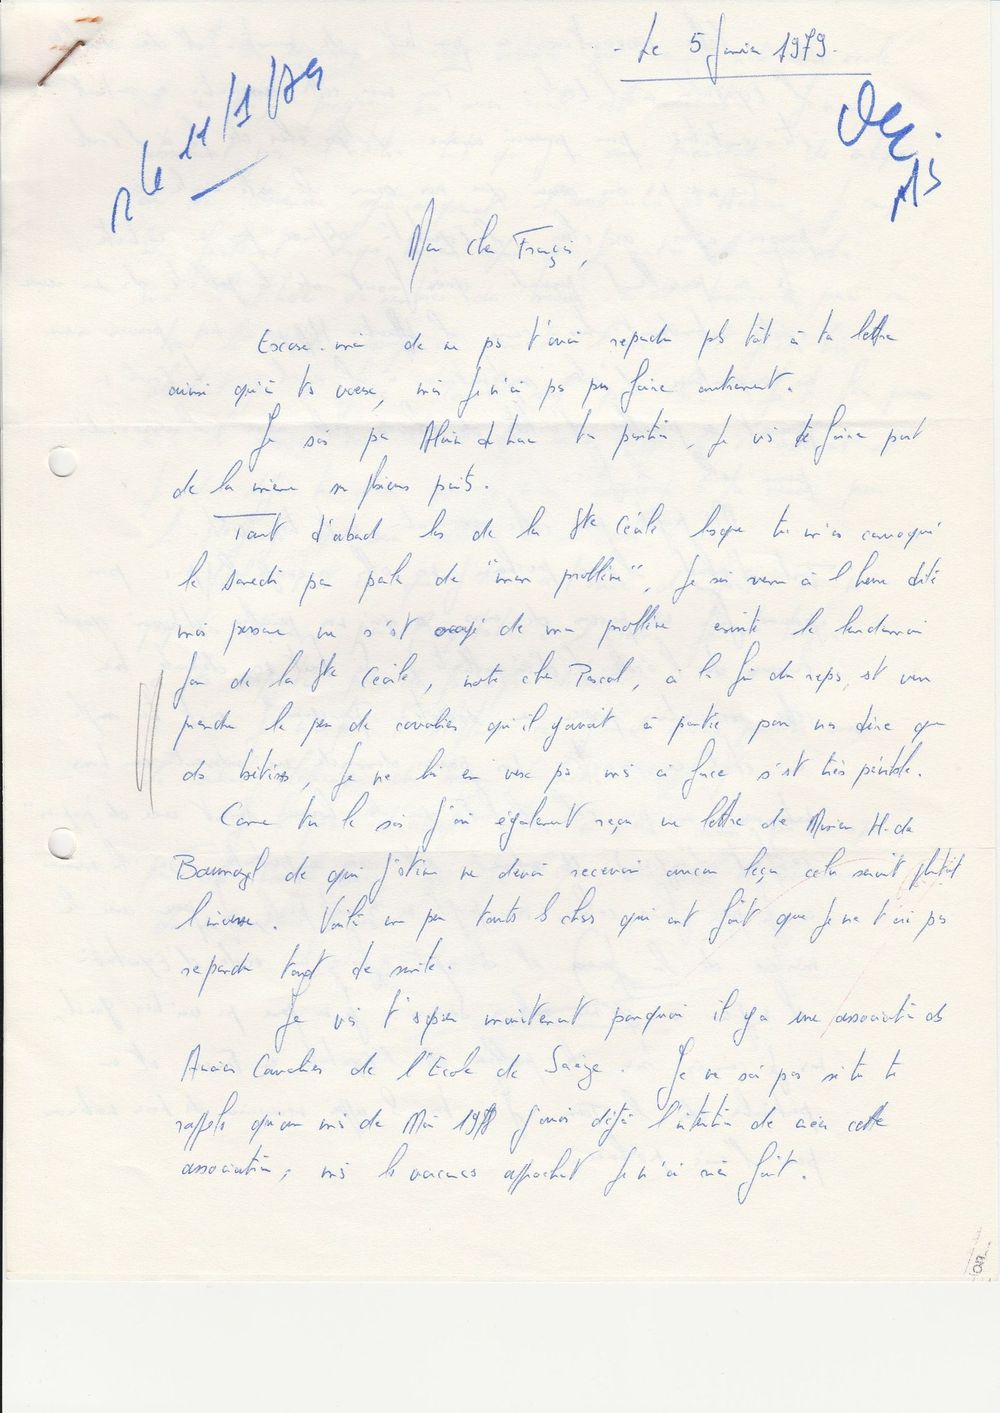 Le 5 Janvier 1979.
R le 11/1/79
Mon cher François,
Excuse-moi de ne pas t'avoir repondu plus tôt à ta lettre
ainsi qu'à tes voeux, mais je n'ai pas pu faire autrement.
Je sais par Alain de ta position, je vais te faire part
de la mienne sur plusieurs points.
Tout d'abord lors de la Ste Cécile lorsque tu m'as convoqué
le samedi pour parler de "mon problème", je suis venu à l'heure dite
mais personne ne s'est occupé de mon problème ensuite le lendemain
jour de la Ste Cécile, notre cher Pascal, à la fin du repas, est venu
prendre le peu de cavaliers qu'il y avait à partie pour nous dire que
des bêtises, je ne lui en veux pas mais ci face s'est très pénible.
Comme tu le sais j'ai également reçu une lettre de Monsieur H. de
de qui j'estime ne devoir recevoir aucune leçon cela serait plutôt
l'inverse. Voilà un peu toutes les choses qui ont fait que je ne t'ai pas
repondu tout de suite.
Je vais t'exposer maintenant pourquoi il y a une association des
Anciens Cavaliers de l'Ecole de Sorèze. Je ne sais pas si tu te
rappels qu'au mois de Mai 1978 j'avais déjà l'intention de créer cette
association, mais les vacances approchant je n'ai rien fait.